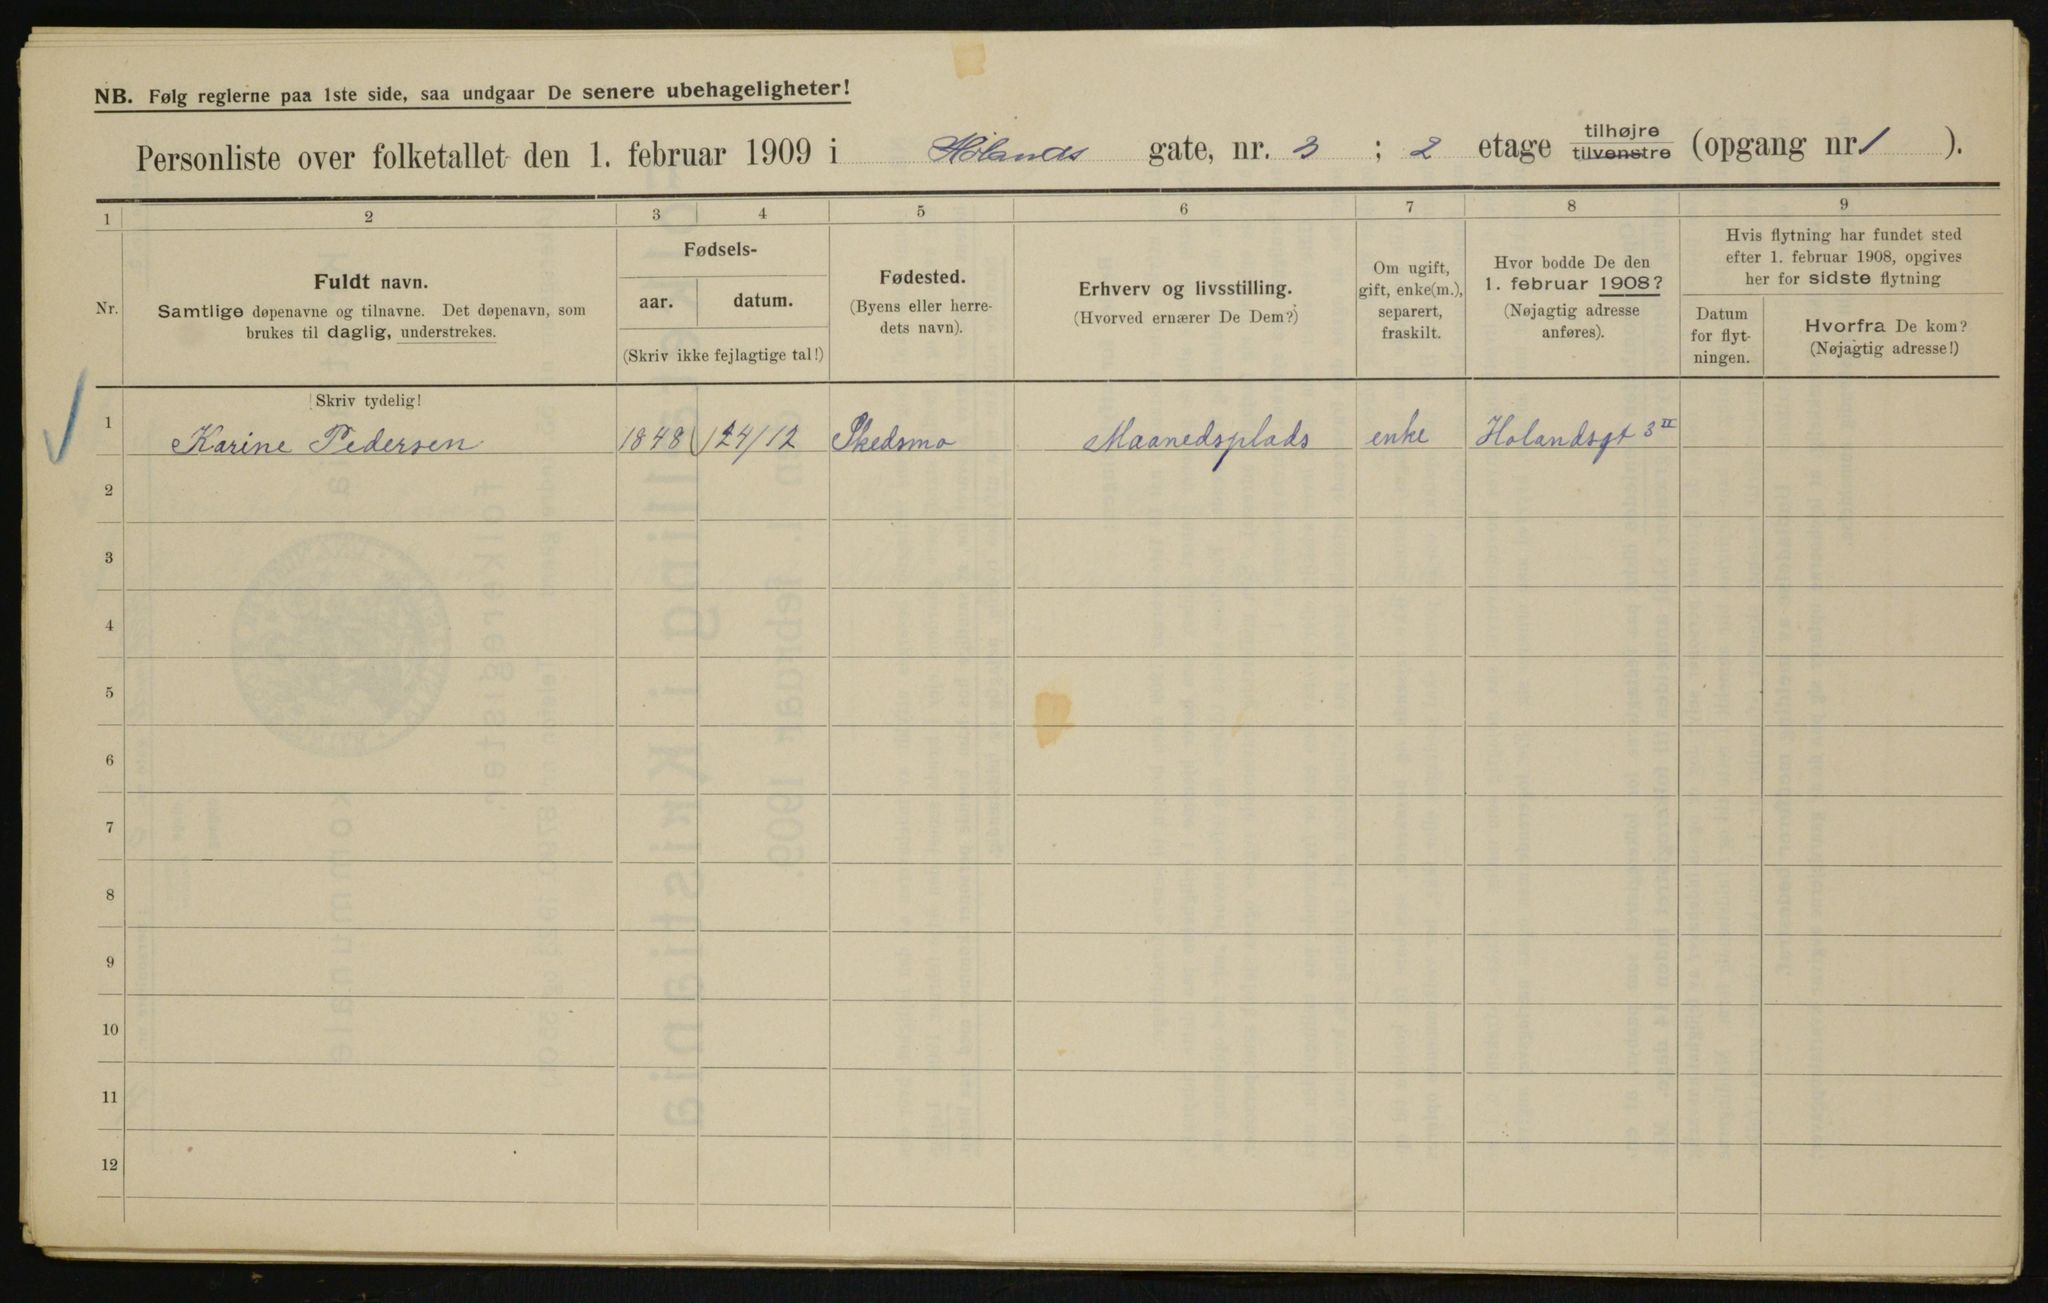 NB. Følg reglerne paa 1ste side, saa undgaar De senere ubehageligheter!
Personliste over folketallet den 1. februar 1909 i Hølands gate, nr. 3 ; 2 etage tilhøjre tilvenstre (opgang nr. 1 ).
1 2 3 4 5 6 7 8 9
Nr.
Fuldt navn.
Samtlige døpenavne og tilnavne. Det døpenavn, som
brukes til daglig, understrekes.
Fødsels-
aar. datum.
(Skriv ikke fejlagtige tal!)
Fødested.
(Byens eller herre-
dets navn).
Erhverv og livsstilling.
(Hvorved ernærer De Dem?)
Om ugift,
gift, enke(m.),
separert,
fraskilt.
Hvor bodde De den
1. februar 1908?
(Nøjagtig adresse
anføres).
Hvis flytning har fundet sted
efter 1. februar 1908, opgives
her for sidste flytning
Datum
for flyt-
ningen.
Hvorfra De kom?
(Nøjagtig adresse!)
Skriv tydelig!
1 Karine Pedersen 1848 24/12 Skedsmo Maanedsplads enke Holandsgt 3 II
2
3
4
5
6
7
8
9
10
11
12